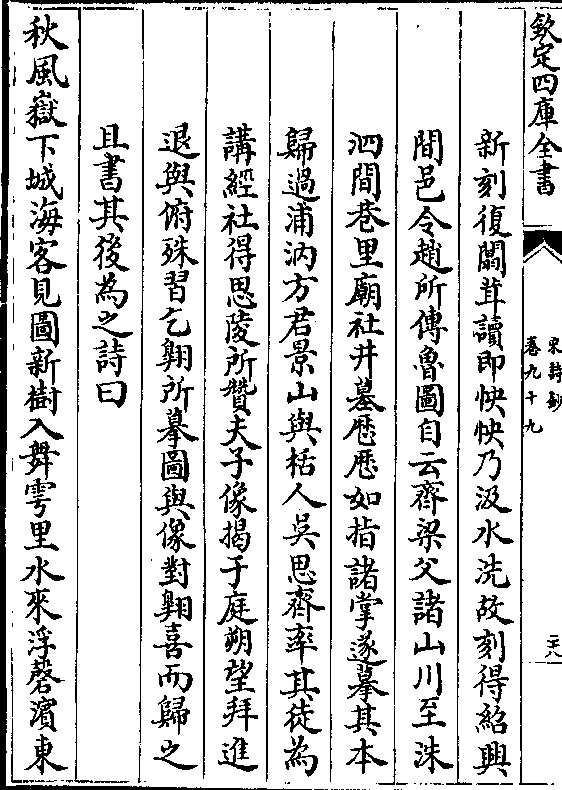 欽定四庫全書
宋詩鈔
卷九十九
二十八
新刻復闒茸讀即怏怏乃汲水洗故刻得紹興
間邑令趙所傳魯圖自云齊梁父諸山川至洙
泗間巷里廟社井墓歷歷如指諸掌遂摹其本
歸過浦汭方君景山與栝人吳思齊率其徒為
講經社得思陵所贊夫子像揭于庭朔望拜進
退與俯殊習乞翺所摹圖與像對翺喜而歸之
且書其後為之詩曰
秋風嶽下城海客見圖新樹入舞雩里水來浮磬濱東